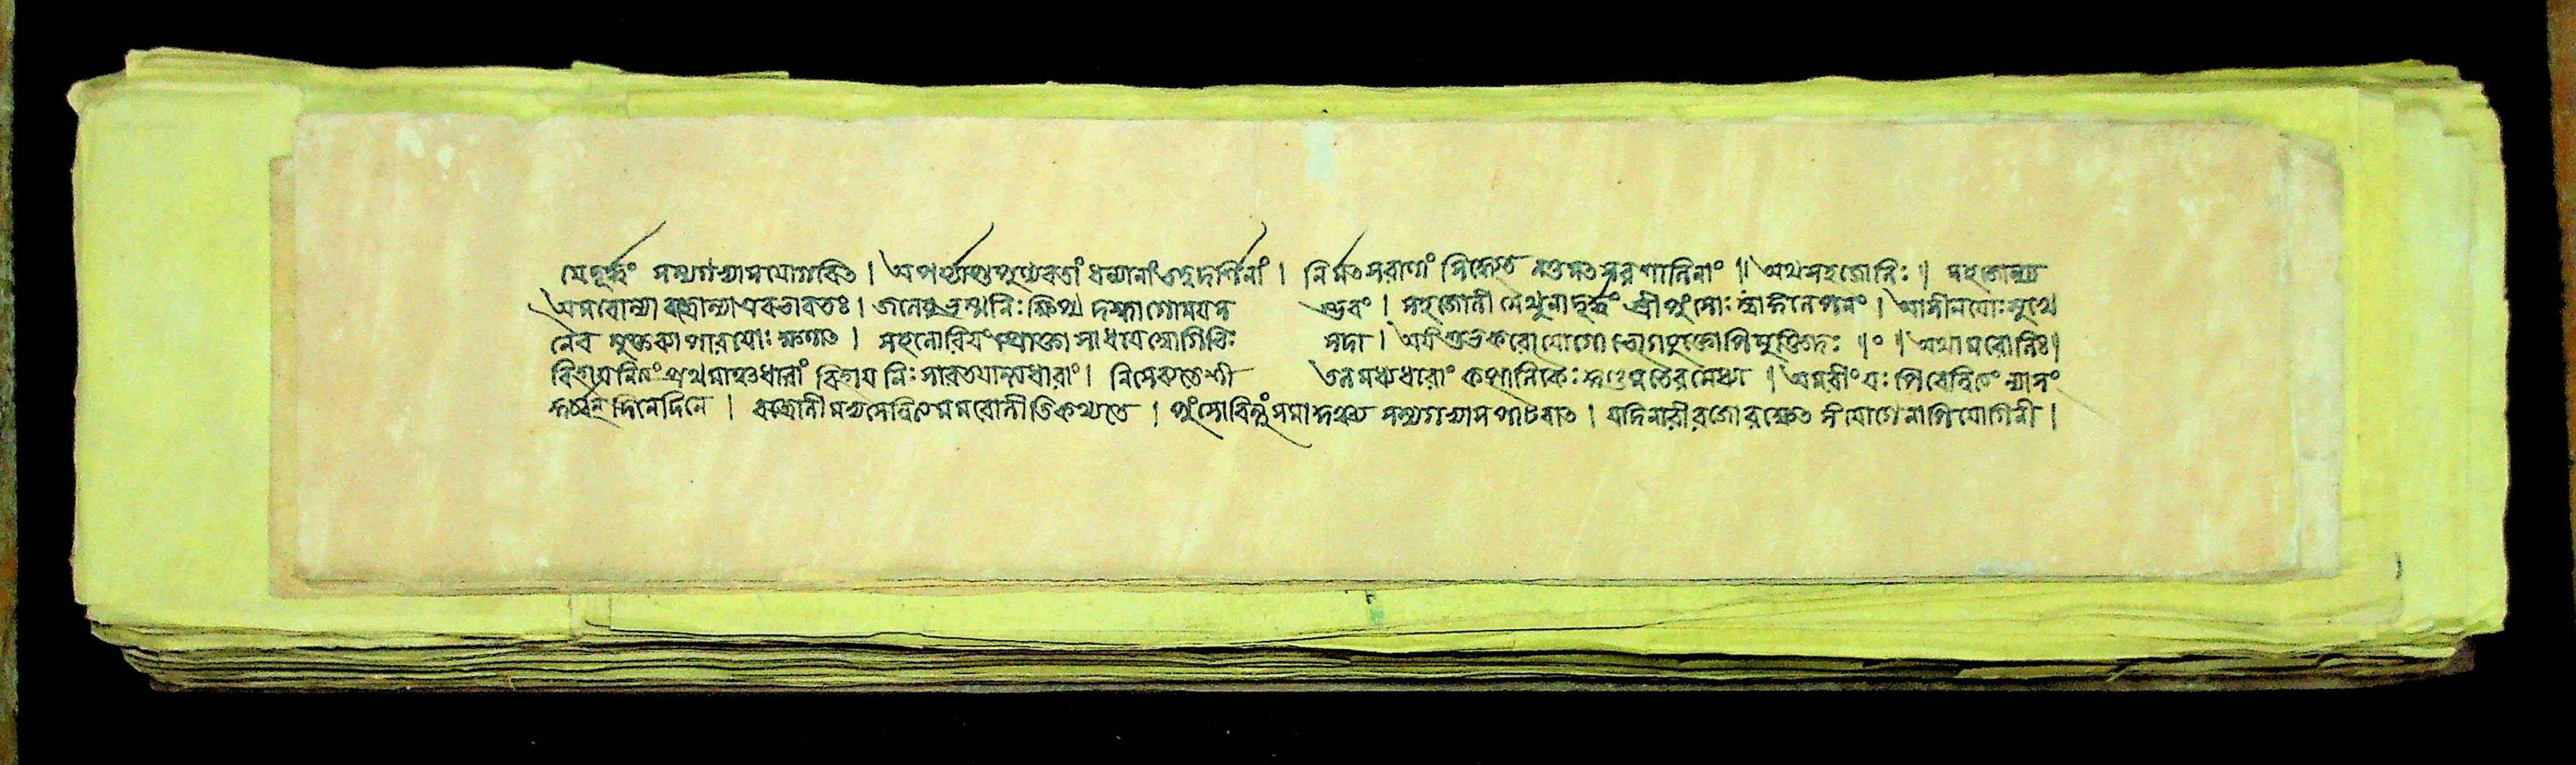 মেদূর্দ্ধং সম্যগভ্যাসযোগবিত । অপর্য্যাপ্তপুণ্যবতাং ধন্যানাং তত্ত্বদর্শিনাং । নির্মৎসরাণাং সিদ্ধ্যেত নতু মৎসরশালিনাং ॥ অথ সহজোলিঃ ॥ সহজোল্য
অমরোল্যা বজ্রোল্যা এবভাবতঃ । জলেষু ভস্মনিঃক্ষিপ্য দগ্ধগোময়স ম্ভবং । সহজোলী মৈথুনাদূর্দ্ধং স্ত্রীপুংসোঃ স্বাঙ্গলেপনং । আসীনয়োঃ সুখে
নৈব মুক্তব্যাপারয়োঃ ক্ষণাৎ । সহজোলিরিয়ং প্রোক্তা সাধ্যয যোগিভিঃ সদা । অয়ং শুভকরো যোগো ভোগযুক্তোপি মুক্তিদঃ ॥০॥ অথামরোলিঃ।
বিহায় নিত্যং প্রথমাম্বুধারাং বিহায় নিঃসারতয়ান্ত্যধারাং । নিসেব্যতে শী তলমধ্যধারাং কাপালিকৈঃ খণ্ডমতেরমেধ্যা । অমরীং যঃ পিবেন্নিত্যং ন্যাসং
কুর্বন্ দিনে দিনে । বজ্রোলীমভ্যসেন্নিত্যমমরোলীতি কথ্যতে । পুংসো বিন্দুং সমাদঞ্চ্য সম্যগভ্যাসপাটবাৎ । যদি নারী রজো রক্ষেৎ সংযোগেনাপি যোগিনী ।